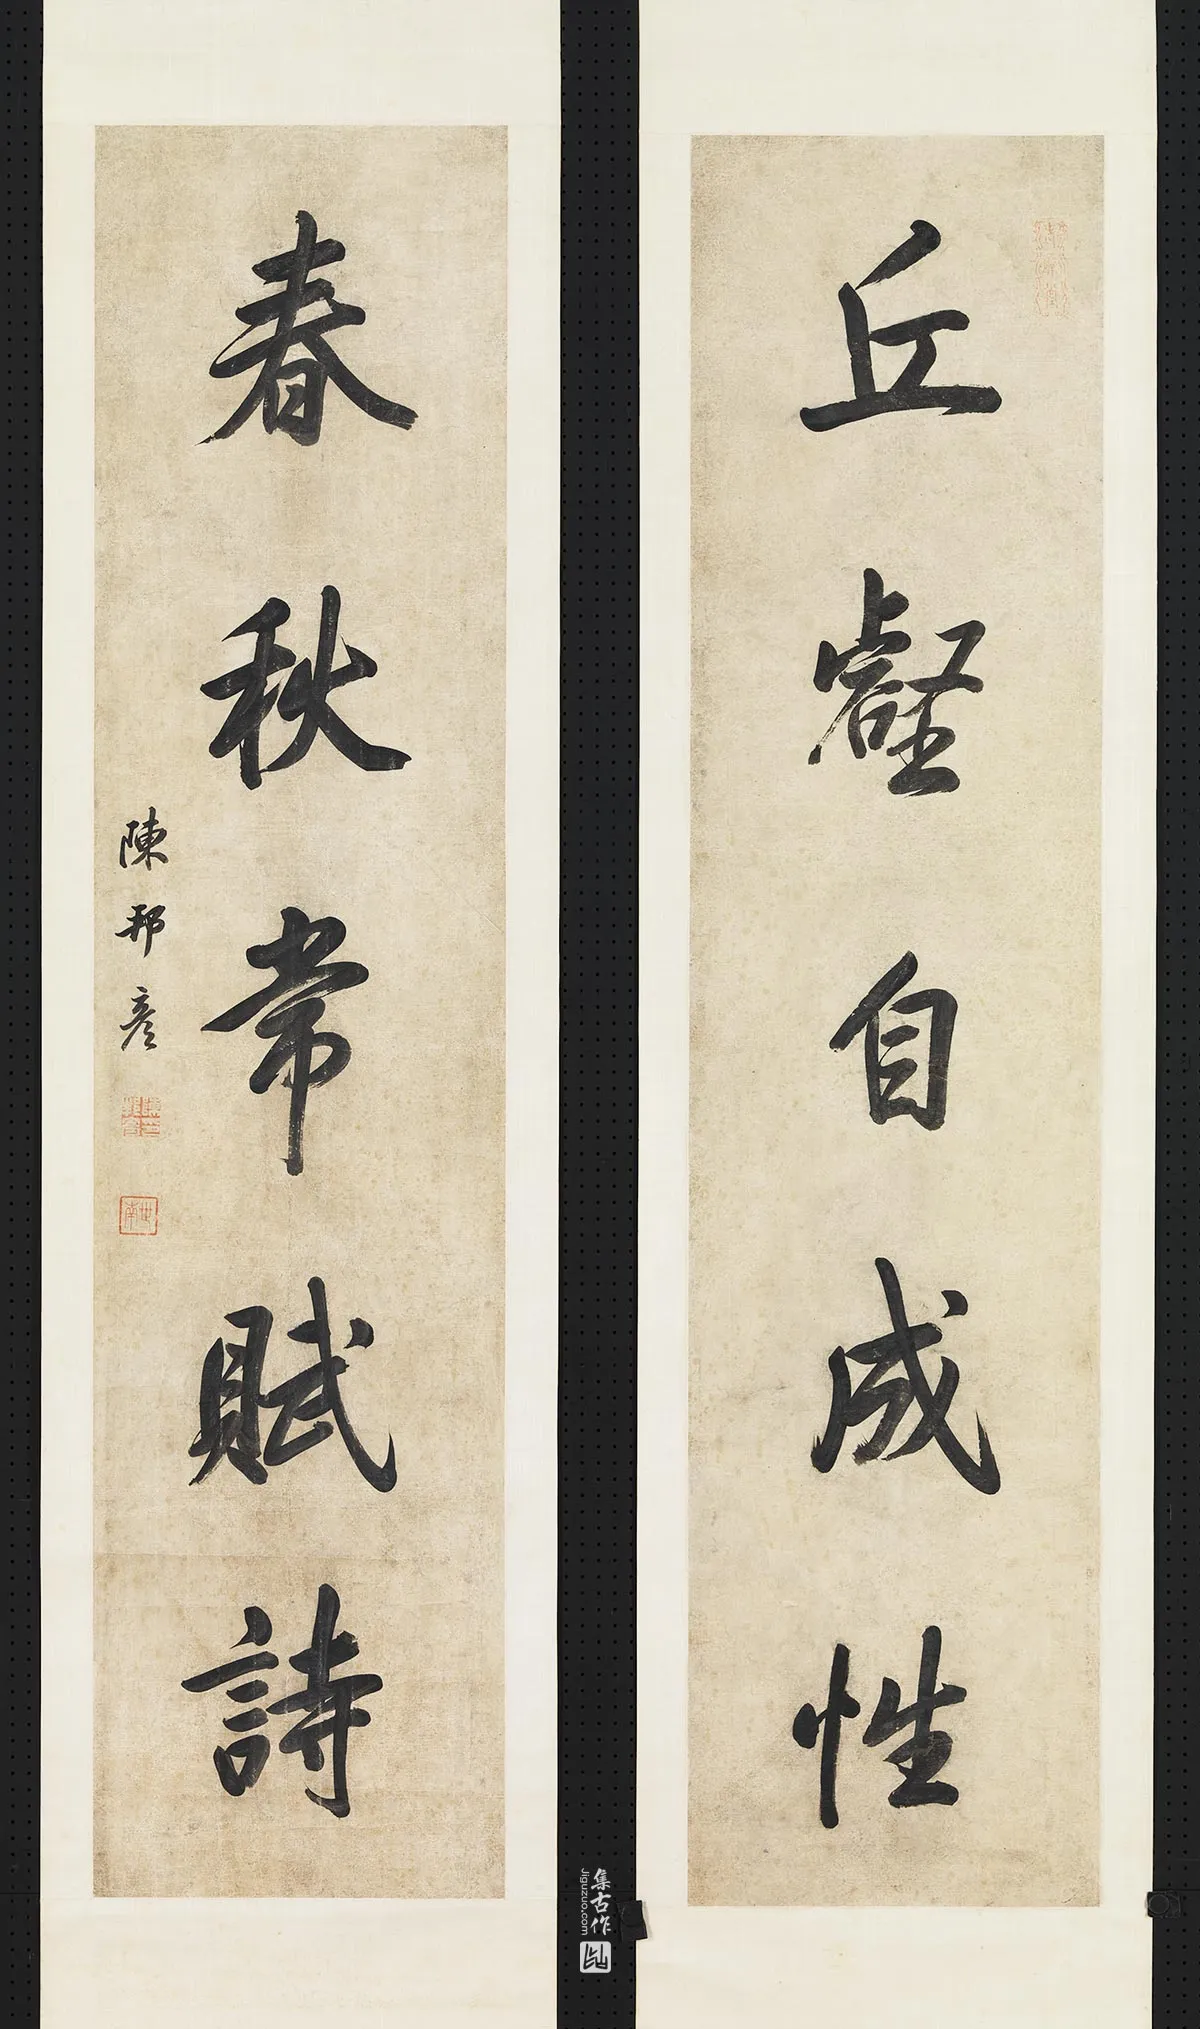 丘壑自成性
春秋常賦詩
陳邦彥
世南
集古作
Jiguzuo.com